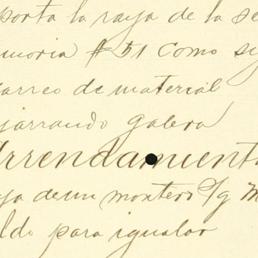 porta la raya de la se
moria # 51 como se
carreo de material
jarrando galera
Arrendamient
ya de un montero s/g M
ldo para igualar